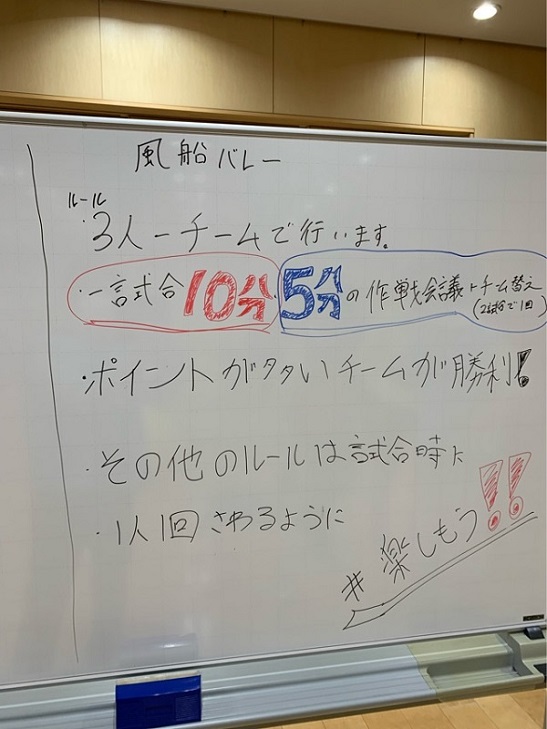 風船バレー
ルール
・3人一チームで行います。
・一試合10分・5分の作戦会議+チーム替え
(2試合で1回)
・ポイントが多いチームが勝利!
・その他のルールは試合時に
・1人1回さわるように
#楽しもう!!